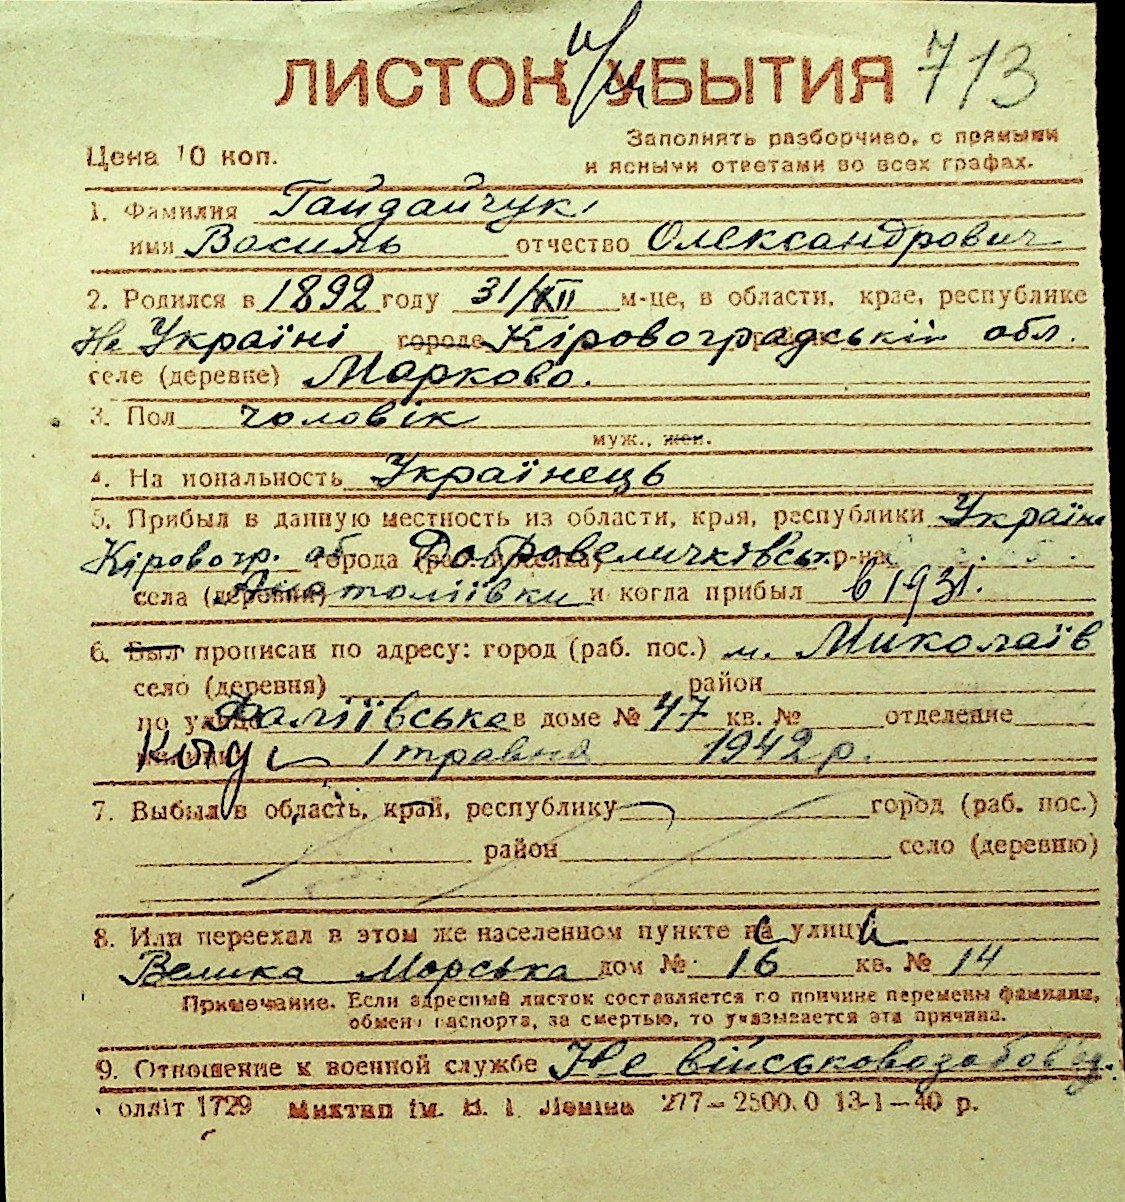 ЛИСТОК УБЫТИЯ 713
Заполнять разборчиво, с прямыми
Цена 10 коп. и ясными ответами во всех графах.
1. Фамилия Гайдайчук
имя Василь отчество Олександрович
2. Родился в 1892 году 31/XII м-це, в области, крае, республике
На Україні городе Кіровоградській обл.
селе (деревне) Марково.
3. Пол чоловік
муж., жен.
4. Национальность Українець
5. Прибыл в данную местность из области, края, республики Україна
Кіровогр. об. города (раб. поселка) Добровеличківськ. р-на
села (деревни) Анатоліївки и когда прибыл в 1931.
6. Был прописан по адресу: город (раб. пос.) м. Миколаїв
село (деревня) район
по улице Фаліївська в доме № 47 кв. № отделение
1 травня 1942 р.
7. Выбыл в область, край, республику город (раб. пос.)
район село (деревню)
8. Или переехал в этом же населенном пункте на улицу
Велика Морська дом № 16 кв. № 14
Примечание. Если адресный листок составляется по причине перемены фамилии,
обмена паспорта, за смертью, то указывается эта причина.
9. Отношение к военной службе Не військовозобов'яз.
олліт 1729 Миктип ім. В. І. Леніна 277—2500.0 13-1—40 р.